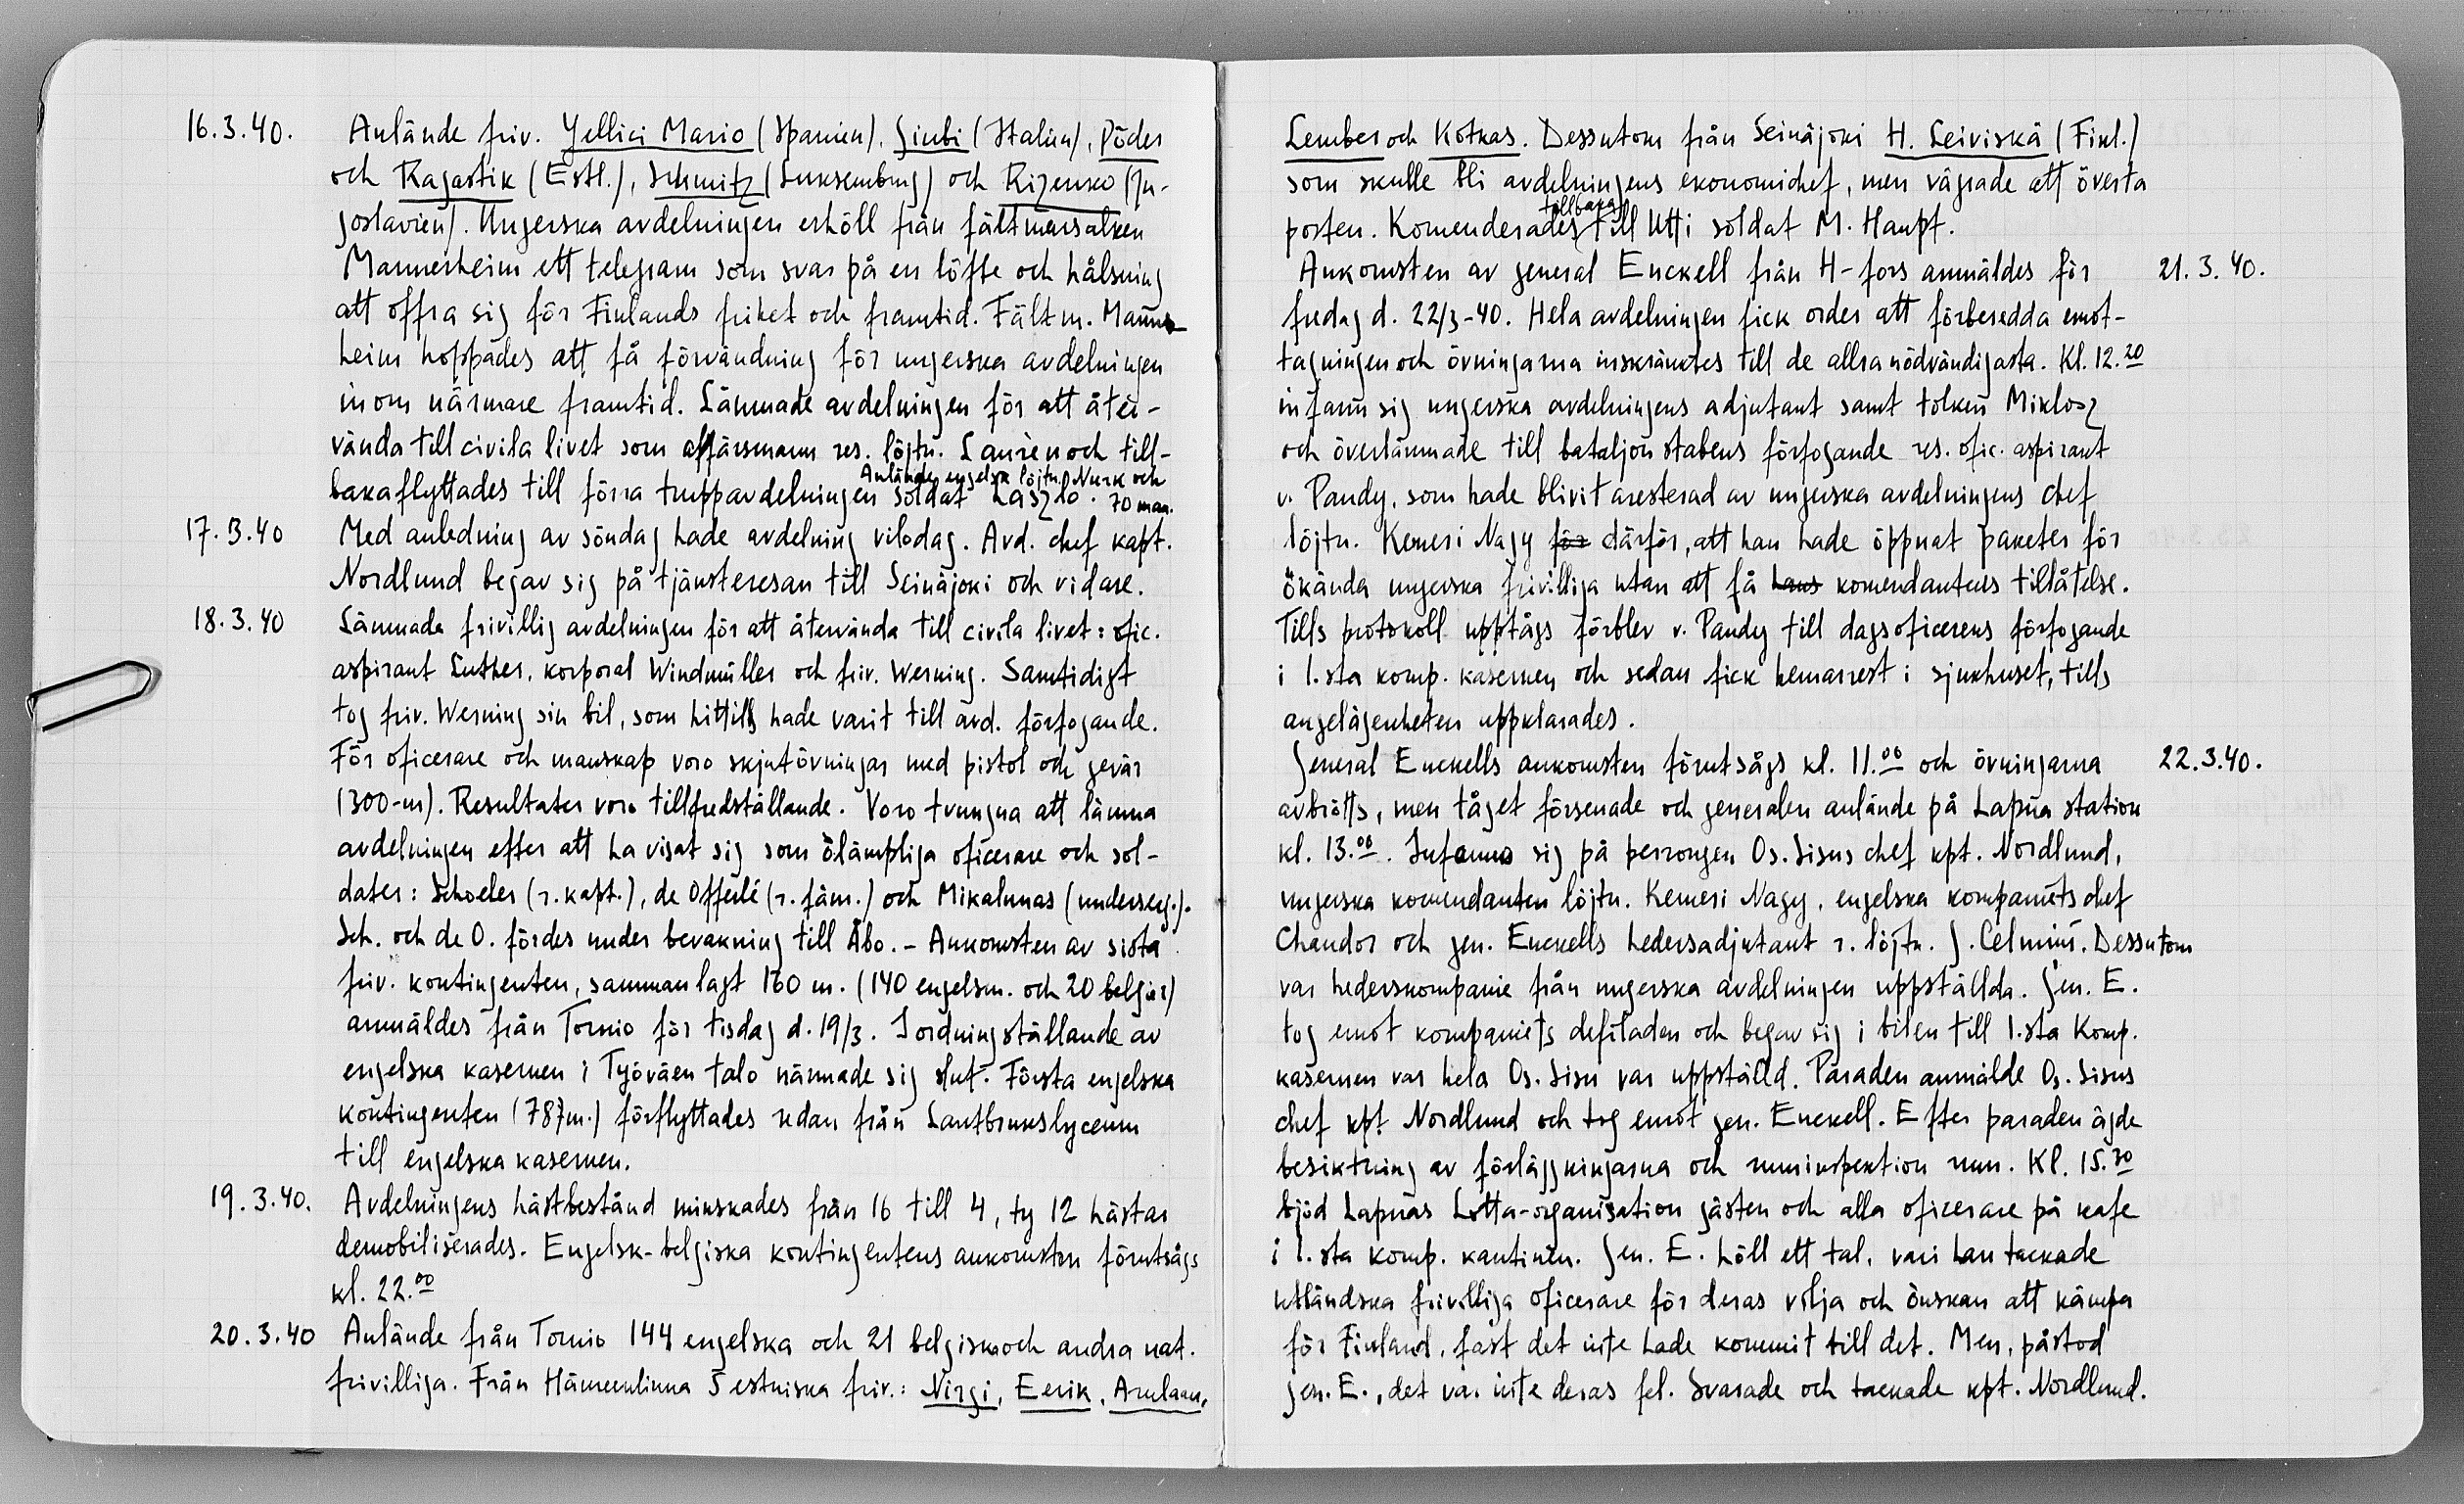 16.3.40. Anlände friv. Yellici Mario (Spanien), Giubi (Italien), Põder
och Ragastik (Estl.), Schmitz (Luksemburg) och Rizenko (Ju-
goslavien). Ungerska avdelningen erhöll från fältmarsalken
Mannerheim ett telegram som svar på en löfte och hälsning
att offra sig för Finlands frihet och framtid. Fältm. Manner-
heim hoppades att få förvändning för ungerska avdelningen
inom närmare framtid. Lämnade avdelningen för att åter-
vända till civila livet som affärsmann res. löjtn. Laurén och till-
bakaflyttades till förra truppavdelningen soldat Laszlo. Anlände engelsk löjtn. Nurk och
70 man.
17.3.40 Med anledning av söndag hade avdelning vilodag. Avd. chef kapt.
Nordlund begav sig på tjänsteresan till Seinäjoki och vidare.
18.3.40 Lämnade frivillig avdelningen för att återvända till civila livet: ofic.
aspirant Luther, korporal Windmüller och friv. Werning. Samtidigt
tog friv. Werning sin bil, som hittills hade varit till avd. förfogande.
För oficerare och manskap voro skjutövningar med pistol och gevär
(300-m). Resultater voro tillfredställande. Voro tvungna att lämna
avdelningen efter att ha visat sig som olämpliga oficerare och sol-
dater: Schoeler (r. kapt.), de Offerlé (r. fäm.) och Mikalunas (underserg.).
Sch. och de O. fördes under bevakning till Åbo. - Ankomsten av sista
friv. kontingenten, sammanlagt 160 m. (140 engelsm. och 20 belgier)
anmäldes från Tornio för tisdag d. 19/3. Iordningställande av
engelska kasernen i Työväen talo närmade sig slut. Första engelska
kontingenten (787m.) förflyttades redan från Lantbrukslyceum
till engelska kasernen.
19.3.40. Avdelningens hästbestånd minskades från 16 till 4, ty 12 hästar
demobiliserades. Engelsk-belgiska kontingentens ankomsten förutsågs
kl. 22.00
20.3.40 Anlände från Tornio 144 engelska och 21 belgiska och andra nat.
frivilliga. Från Hämeenlinna 5 estniska friv.: Nirgi, Eerik, Amlaan,
Lember och Kotkas. Dessutom från Seinäjoki H. Leiviskä (Finl.)
som skulle bli avdelningens ekonomichef, men vägrade att överta
posten. Komenderades tillbaka till Utti soldat M. Haupt.
Ankomsten av general Enckell från H-fors anmäldes för 21.3.40.
fredag d. 22/3-40. Hela avdelningen fick order att förberedda emot-
tagningen och övningarna inskränktes till de allra nödvändigasta. Kl. 12.20
infann sig ungerska avdelningens adjutant samt tolken Miklosz
och överlämnade till bataljon stabens förfogande res. ofic. aspirant
v. Pandy, som hade blivit aresterad av ungerska avdelningens chef
löjtn. Kemeri Nagy för därför, att han hade öppnat paketer för
okända ungerska frivilliga utan att få hans komendantens tillåtelse.
Tills protokoll upptågs förblev v. Pandy till dagsoficerens förfogande
i 1.sta komp. kasernen och sedan fick hemarrest i sjukhuset, tills
angelägenheten uppklarades.
General Enckells ankomsten förutsågs kl. 11.00 och övningarna 22.3.40.
avbrötts, men tåget försenade och generalen anlände på Lapua station
kl. 13.00. Infanns sig på perrongen Os. Sisus chef kpt. Nordlund,
ungerska komendanten löjtn. Kemeri Nagy, engelska kompaniets chef
Chandor och gen. Enckells hedersadjutant r. löjtn. G. Celmiņš. Dessutom
var hederskompanie från ungerska avdelningen uppställda. Gen. E.
tog emot kompaniets defiladen och begav sig i bilen till 1.sta Komp.
kasernen var hela Os. Sisu var uppställd. Paraden anmälde Os. Sisus
chef kpt Nordlund och tog emot gen. Enckell. Efter paraden ägde
besiktning av förläggningarna och runinspektion rum. Kl. 15.30
bjöd Lapuas Lotta-organisation gästen och alla oficerare på kafe
i 1.sta komp. kantinen. Gen. E. höll ett tal, vari han tackade
utländska frivilliga oficerare för deras vilja och önskan att kämpa
för Finland, fast det inte hade kommit till det. Men, påstod
gen. E., det var inte deras fel. Svarade och tackade kpt. Nordlund.